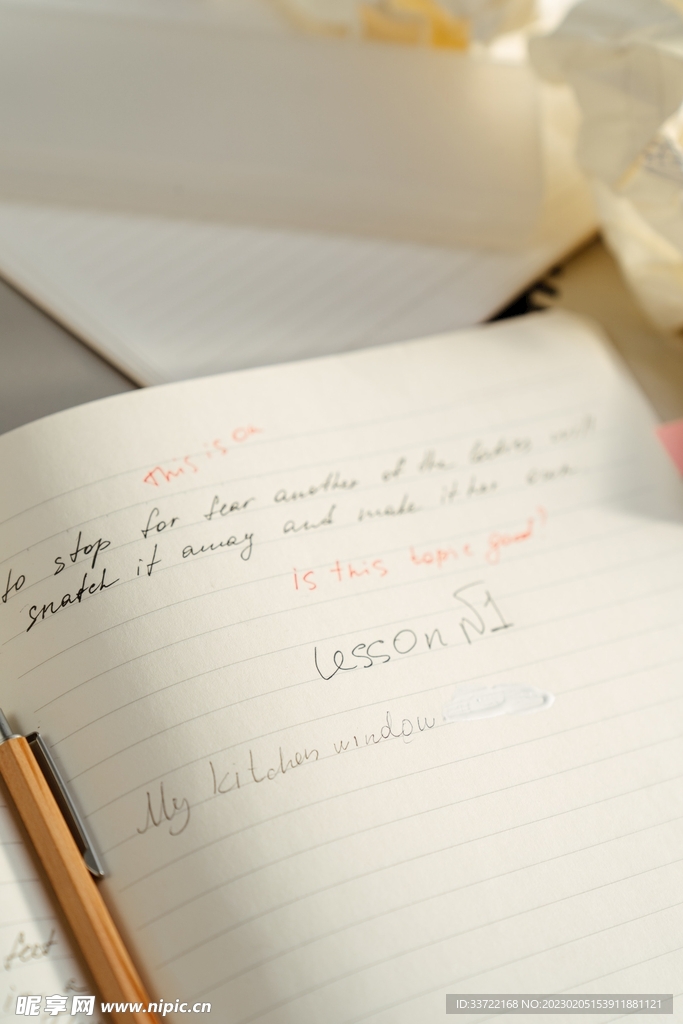 This is on
to stop for fear another of the ladies will
snatch it away and make it her own.
is this topic good?
Lesson N1
My kitchen window
feet
昵享网 www.nipic.cn
ID:33722168 NO:20230205153911881121